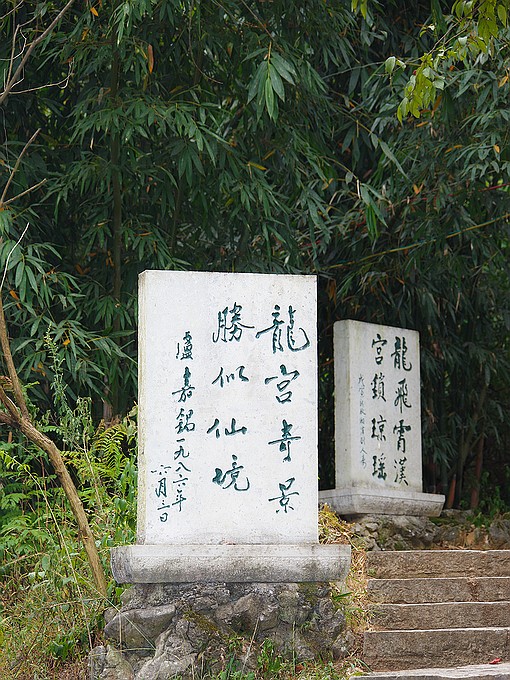 龍宮奇景
勝似仙境
盧嘉錫一九八六年
六月三日
龍飛霄漢
宮鎖瓊瑤